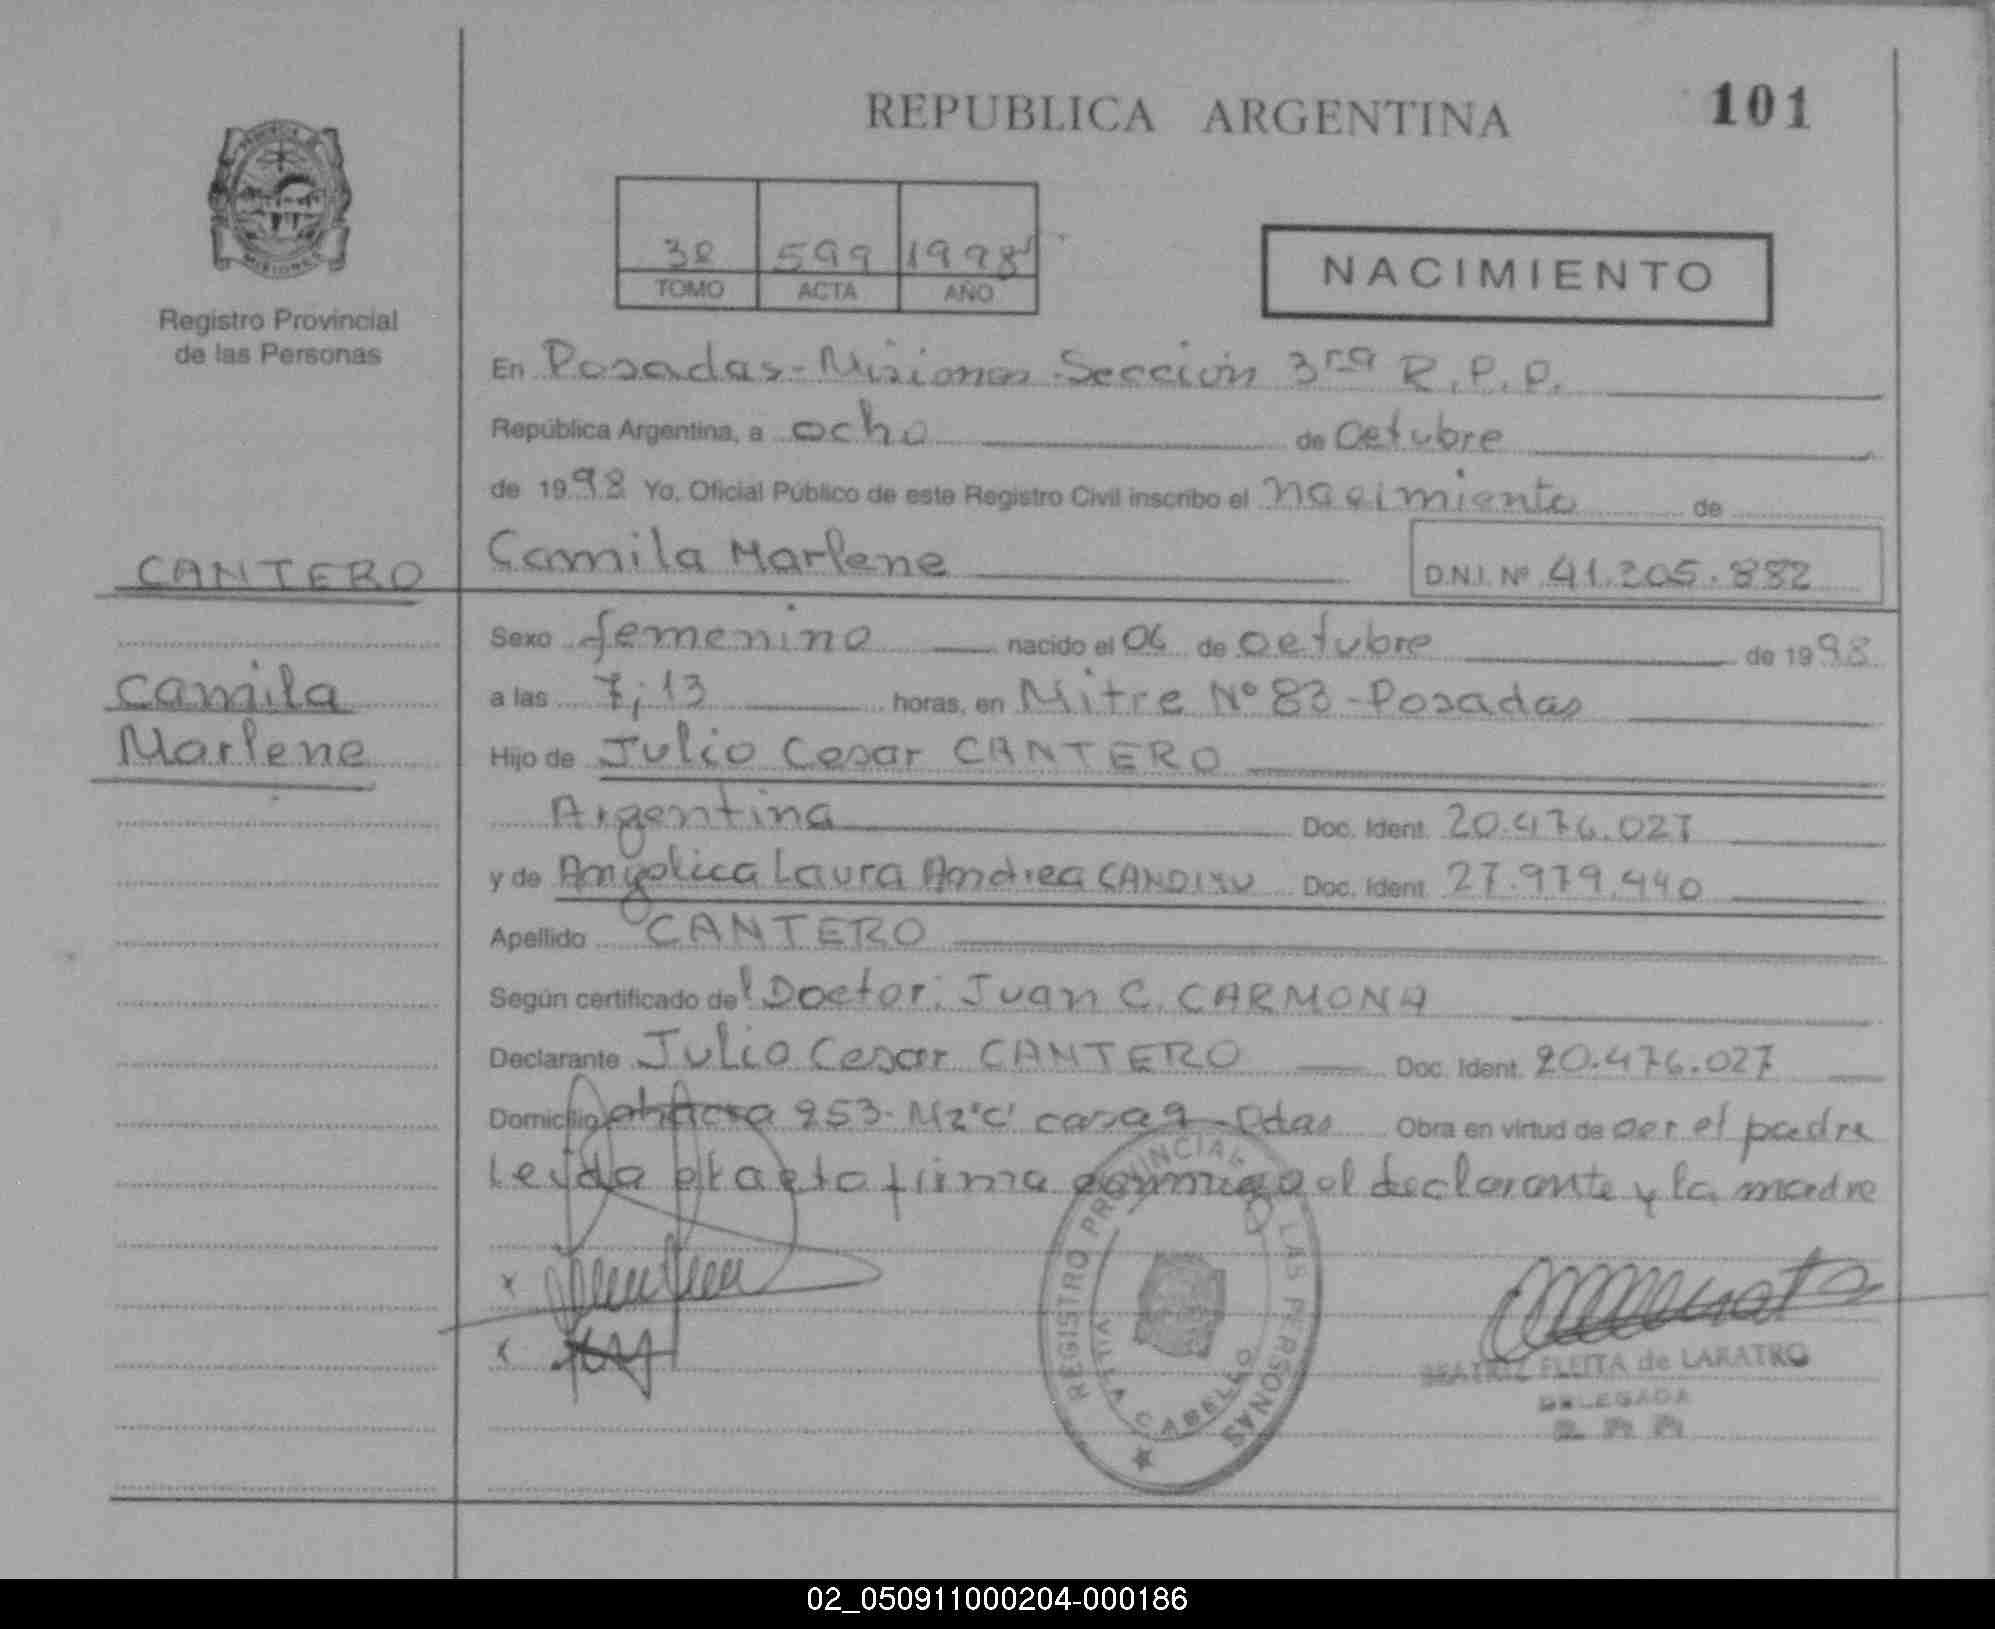 REPUBLICA ARGENTINA
101
MISIONES
Registro Provincial
de las Personas
3º 599 1998
TOMO ACTA AÑO
NACIMIENTO
En Posadas-Misiones-Sección 3ra R.P.P.
República Argentina, a ocho de octubre
de 1998 Yo, Oficial Público de este Registro Civil inscribo el nacimiento de
CANTERO
Camila Marlene
D.N.I. Nº 41.205.882
Sexo femenino nacido el 06 de octubre de 1998
Camila
Marlene
a las 7;13 horas, en Mitre Nº 83-Posadas
Hijo de Julio Cesar CANTERO
Argentina Doc. Ident. 20.476.027
y de Angelica Laura Andrea Doc. Ident. 27.979.440
Apellido CANTERO
Según certificado del Doctor: Juan C. CARMONA
Declarante Julio Cesar CANTERO Doc. Ident. 20.476.027
Domicilio chacra 253-Mz"C" casa 9-Pdas Obra en virtud de ser el padre
Leida el acta firma conmigo el declarante y la madre
REGISTRO PROVINCIAL LAS PERSONAS
VILLA CABELLO
BEATRIZ FLEITA de LARATRO
DELEGADA
02_050911000204-000186